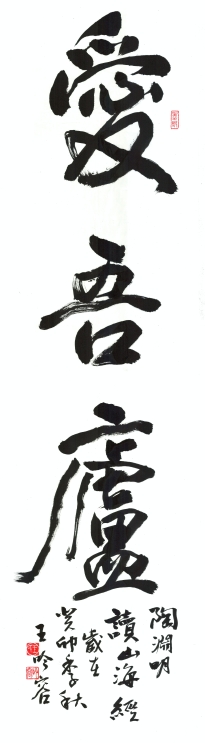 愛吾廬
陶淵明
讀山海經
歲在
癸卯季秋
王吟容